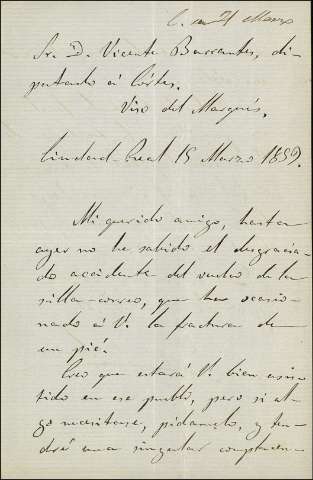 C. en 21 Marzo
Sr. D. Vicente Barrantes, di-
putado á Córtes.
Viso del Marqués.
Ciudad-Real 15 Marzo 1859.
Mi querido amigo, hasta
ayer no he sabido el desgracia-
do accidente del vuelco de la
silla-correo, que ha ocasio-
nado á V. la fractura de
un pié.
Creo que estará V. bien asis-
tido en ese pueblo, pero si al-
go necesitase, pídamelo, y ten-
dré una singular complacen-